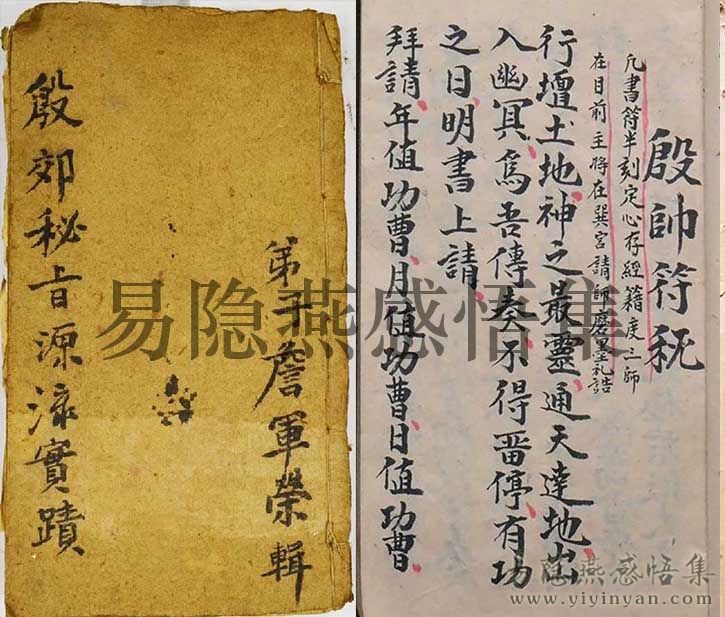 殷郊秘旨源流實蹟
弟子詹軍榮輯
殷帥符秘
凢書符半刻定心存經籍度三師
在目前主將在巽宮請師磨墨礼誥
行壇土地、神之最靈、通天達地、出
入幽冥、爲吾傳奏、不得畱停、有功
之日、明書上請、
拜請、年值功曹、月值功曹、日值功曹、
易隐燕感悟集
隐燕感悟集
www.yiyinyan.com